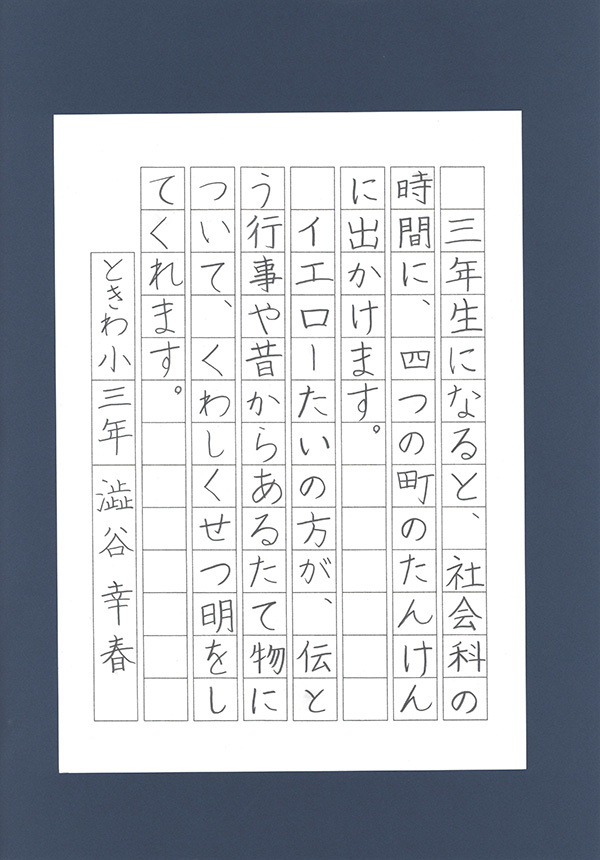 三年生になると、社会科の
時間に、四つの町のたんけん
に出かけます。
　イエローたいの方が、伝と
う行事や昔からあるたて物に
ついて、くわしくせつ明をし
てくれます。
ときわ小三年 澁谷幸春